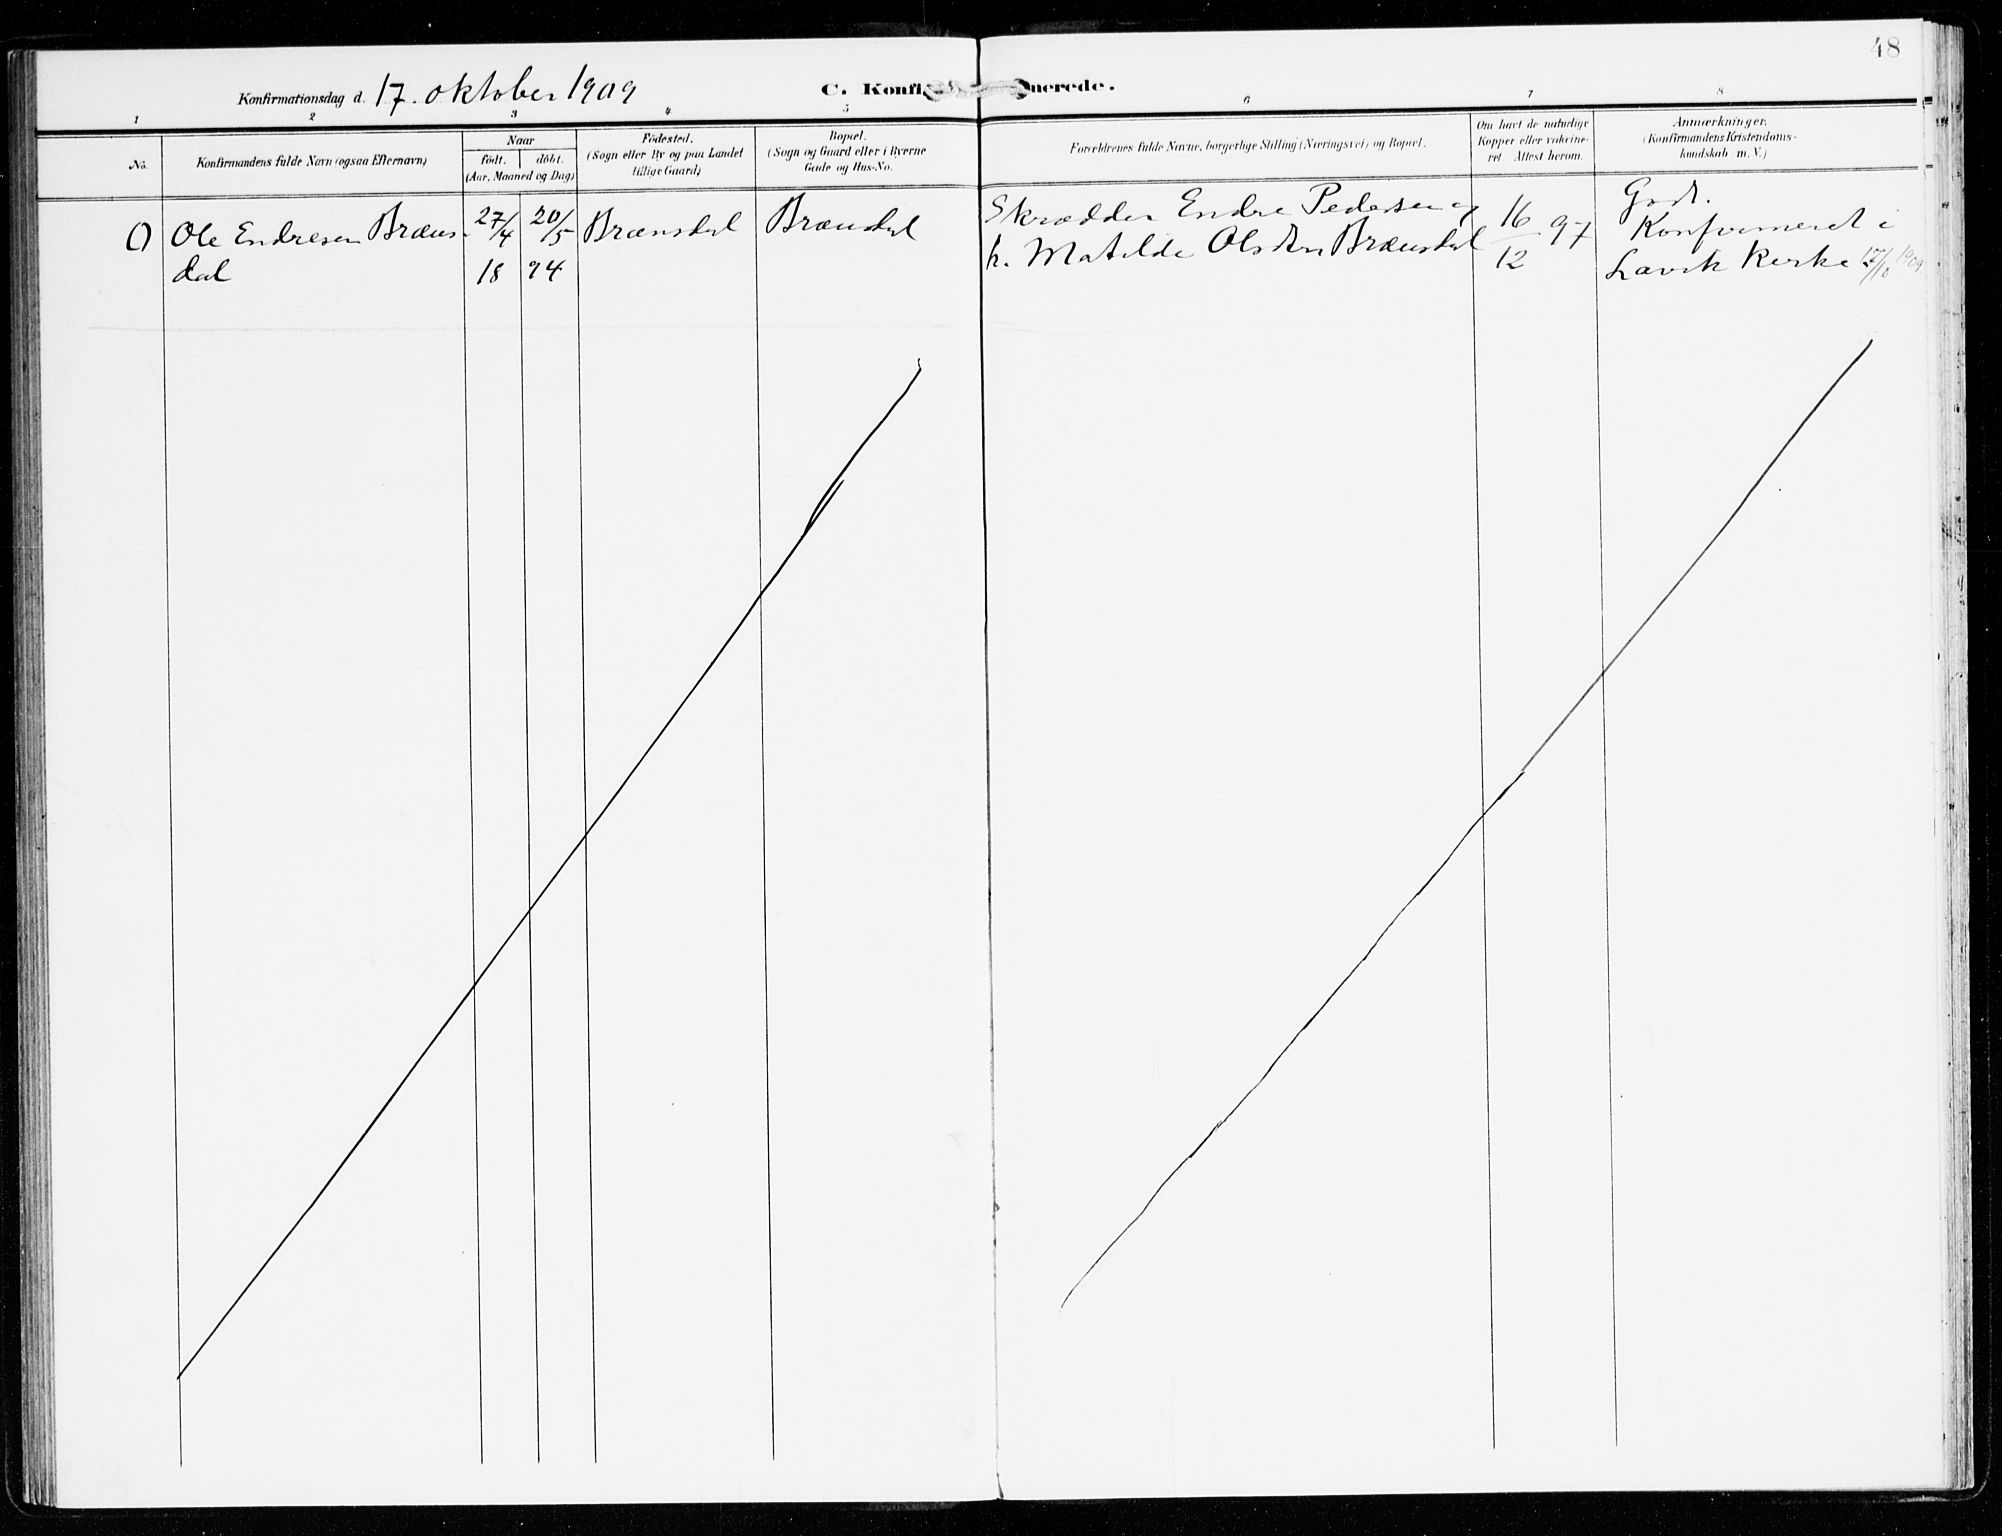 48
Konfirmationsdag d. 17. oktober 1909
C. Konfi nerede.
1 2 3 4 5 6 7 8
No.
Konfirmandens fulde Navn (ogsaa Efternavn)
Naar
født. døbt.
(Aar, Maaned og Dag)
Fødested.
(Sogn eller By og paa Landet
tillige Gaard)
Bopæl.
(Sogn og Gaard eller i Byerne
Gade og Hus-No.
Forældrenes fulde Navne, borgerlige Stilling (Næringsvei) og Bopæl.
Om havt de naturlige
Kopper eller vakcine-
ret Attest herom.
Anmærkninger.
(Konfirmandens Kristendoms-
kundskab m. V.)
Ole Endresen Bræns-
dal
27/4 20/5
18 94
Brænsdal
Brænsdal
Skrædder Endre Pedersen og
h. Matilde Brænsdal
16/12 97
Godt.
Konfirmeret i
Lavik Kirke 17/10 1909.